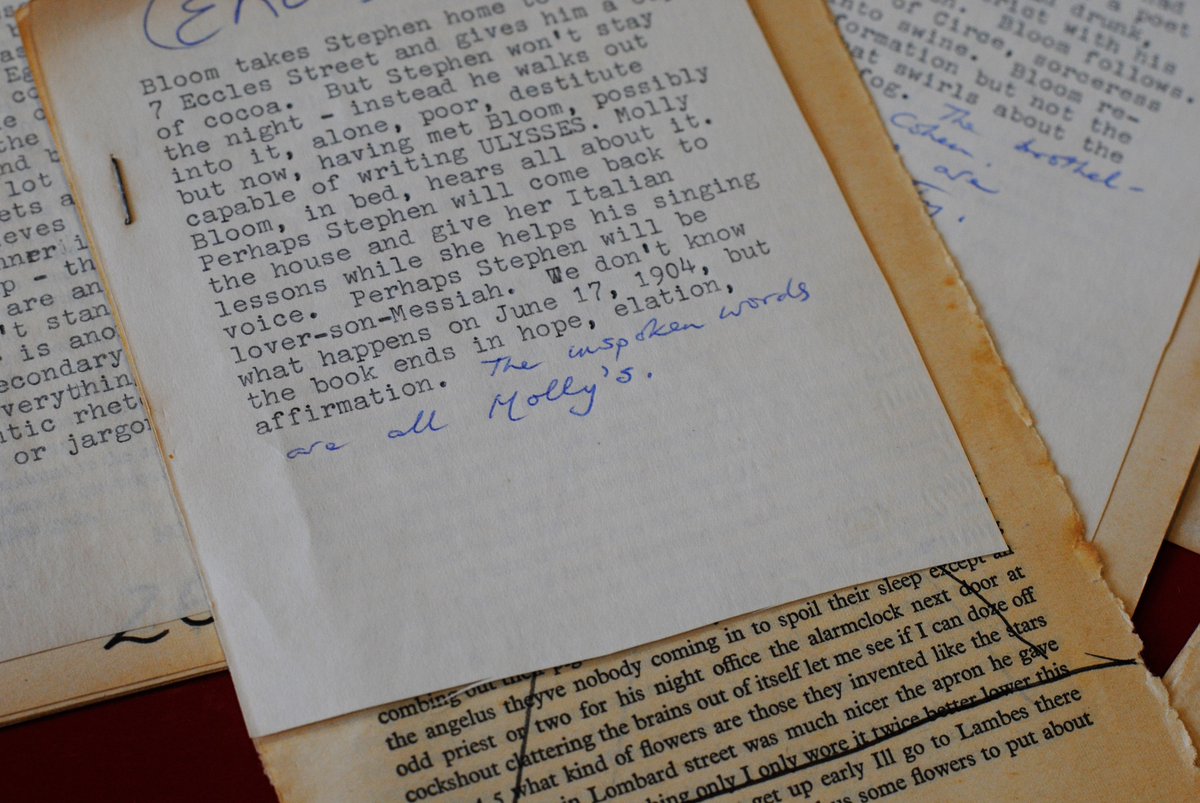 lot
ets a
ieves
nner
p - th
are an
't stan
is ano
econdary
verythin
tic rhet
or jargon
Bloom takes Stephen home to
7 Eccles Street and gives him a
of cocoa. But Stephen won't stay
the night - instead he walks out
into it, alone, poor, destitute
but now, having met Bloom, possibly
capable of writing ULYSSES. Molly
Bloom, in bed, hears all about it.
Perhaps Stephen will come back to
the house and give her Italian
lessons while she helps his singing
voice. Perhaps Stephen will be
lover-son-Messiah. We don't know
what happens on June 17, 1904, but
the book ends in hope, elation,
affirmation. The unspoken words
are all Molly's.
a poet
drunk,
rict with his
Bloom follows.
of Circe, sorceress
into swine. Bloom re-
formation but not the
at swirls about the
og. The brothel-
Cohen.
are
combing out
the angelus theyve nobody coming in to spoil their sleep except an
odd priest or two for his night office the alarmclock next door at
cockshout clattering the brains out of itself let me see if I can doze off
5 what kind of flowers are those they invented like the stars
in Lombard street was much nicer the apron he gave
only I only wore it twice better lower this
get up early Ill go to Lambes there
us some flowers to put about